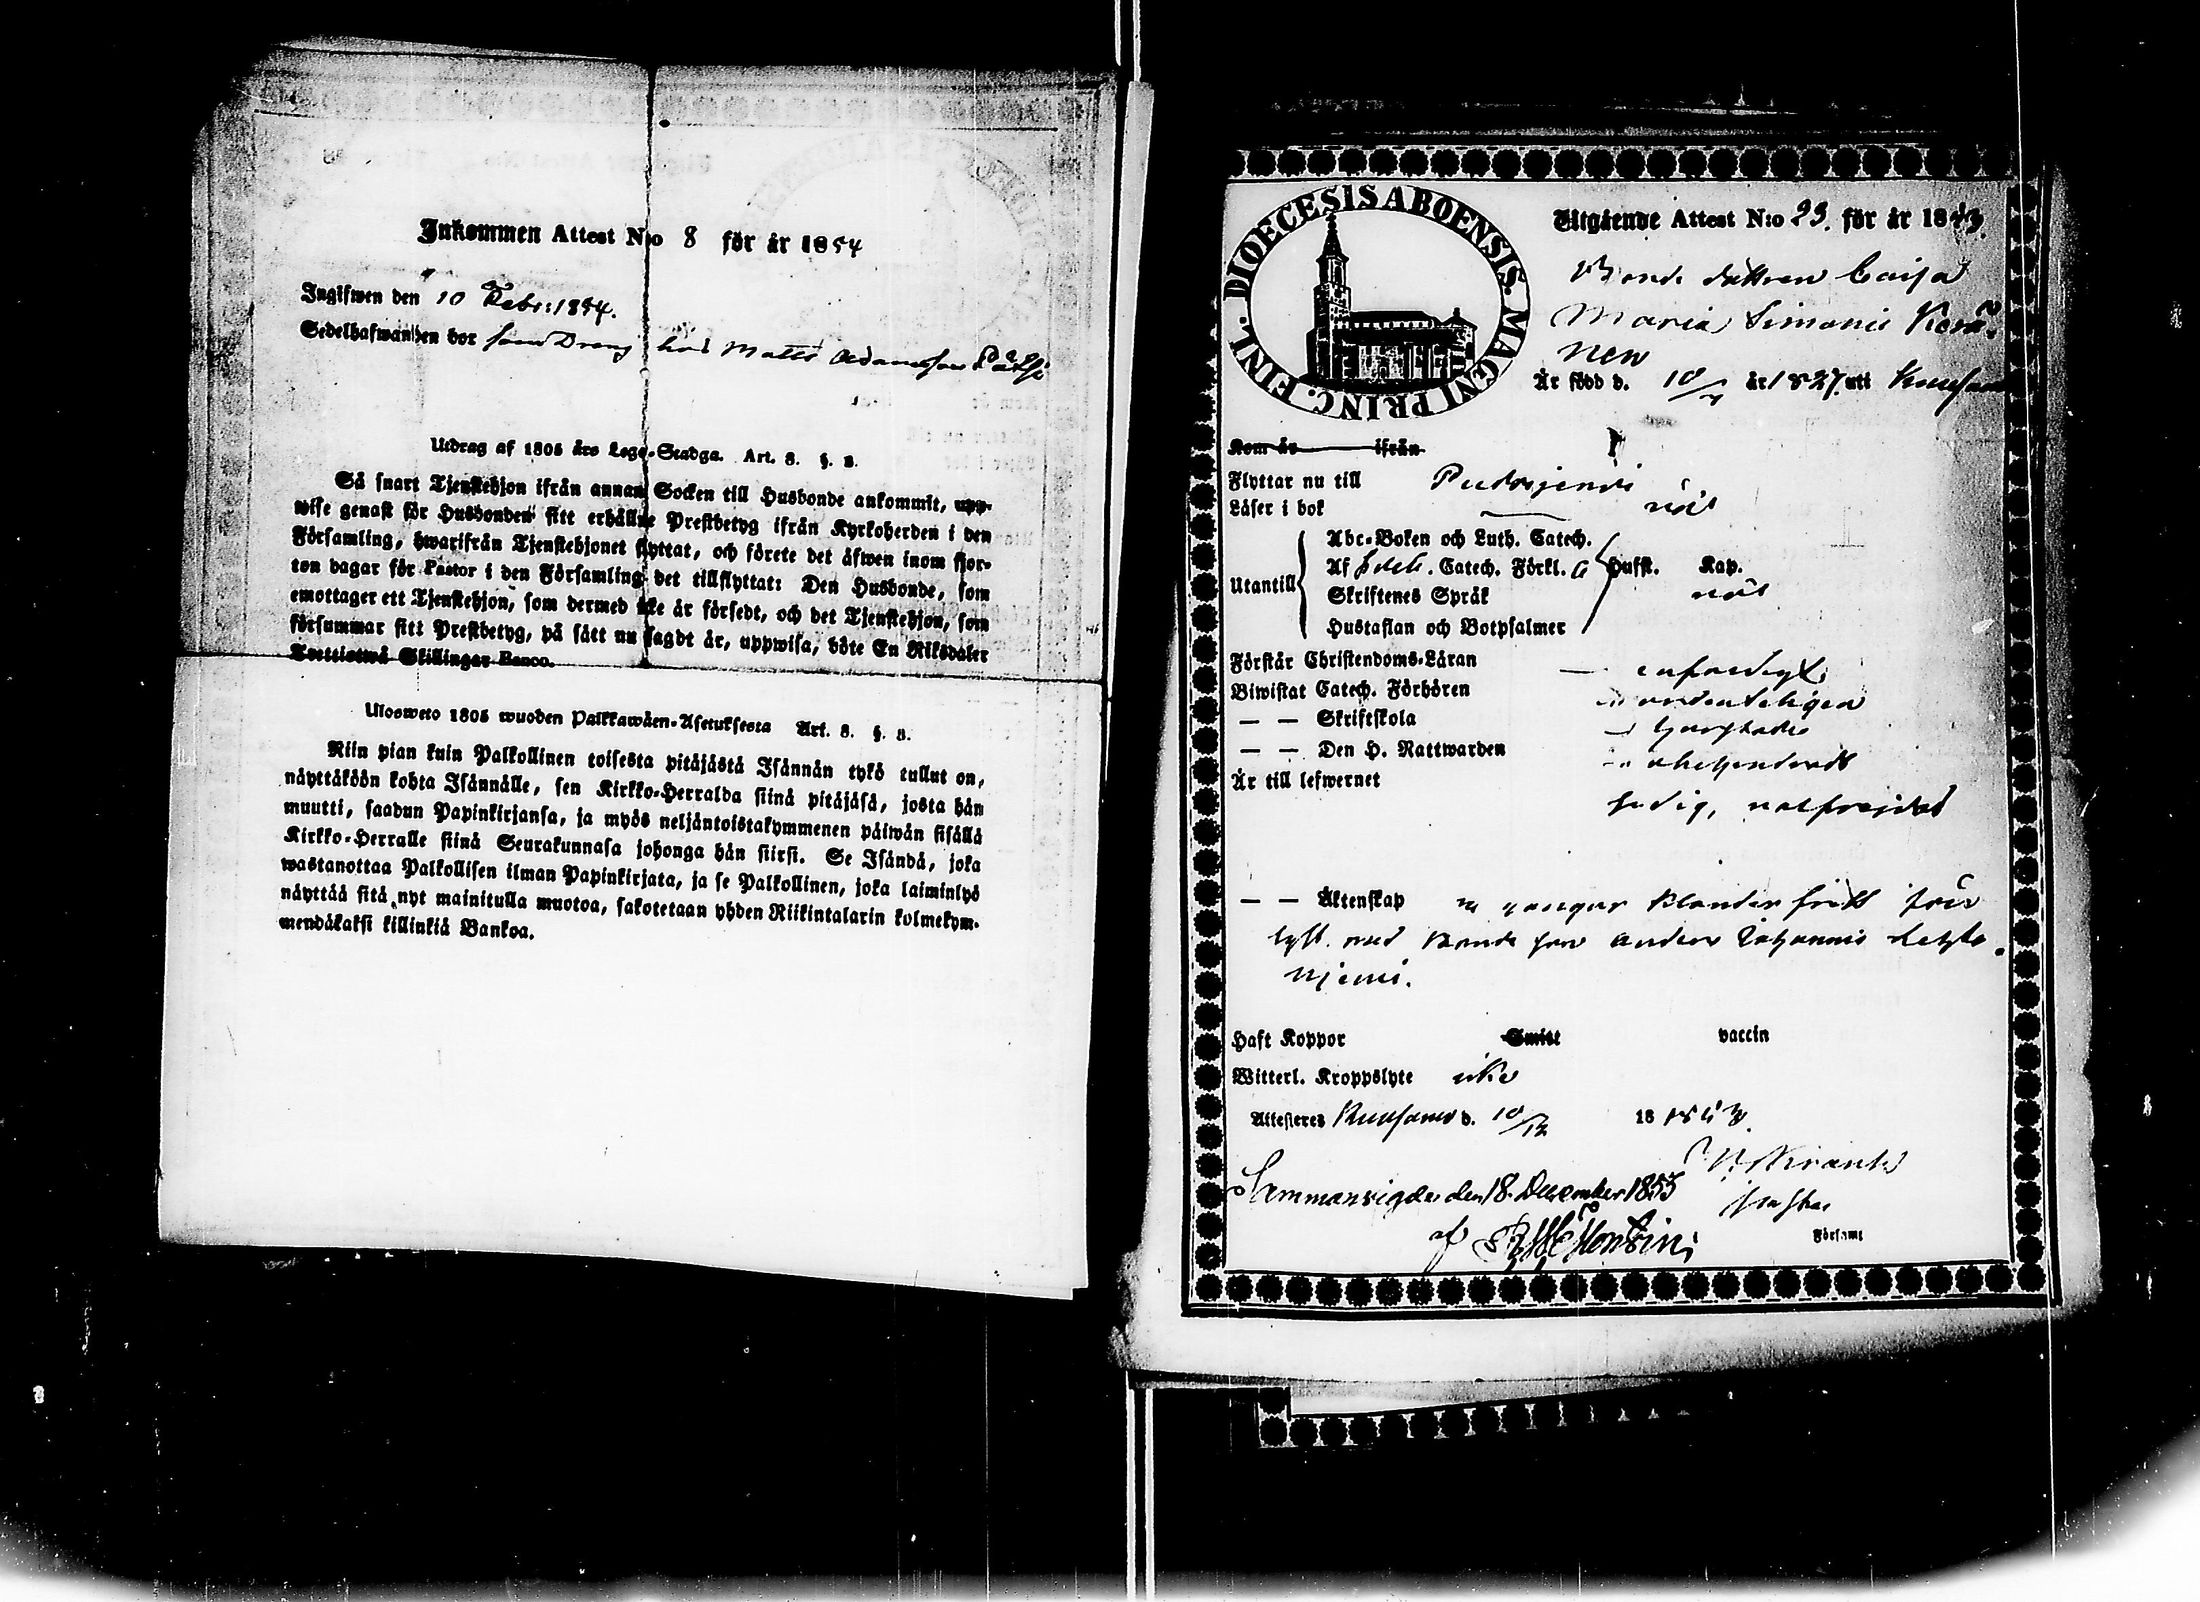 Inkommen Attest N:o 8 för år 1854
Ingifwen den 10 Febr: 1854.
Sedelhafwanden bor som Dreng hos Matts Adamsson Pätsi
Utdrag af 1805 års Lego-Stadga. Art. 8. §. 3.
Så snart Tjenstehjon ifrån annan Socken till Husbonde ankommit, upp-
wise genast för Husbonden sitt erhållne Prestbetyg ifrån Kyrkoherden i den
Församling, hwarifrån Tjenstehjonet flyttat, och förete det äfwen inom fjor-
ton dagar för Pastor i den Församling det tillflyttat: Den Husbonde, som
emottager ett Tjenstehjon, som dermed icke är försedt, och det Tjenstehjon, som
försummar sitt Prestbetyg, på sätt nu sagdt är, uppwisa, böte En Riksdaler
Trettiotwå Skillingar Banco.
Ulosweto 1805 wuoden Palkkawäen-Asetuksesta Art. 8. §. 3.
Niin pian kuin Palkollinen toisesta pitäjästä Isännän tykö tullut on,
näyttäköön kohta Isännälle, sen Kirkko-Herralda siinä pitäjäsä, josta hän
muutti, saadun Papinkirjansa, ja myös neljäntoistakymmenen päiwän sisällä
Kirkko-Herralle siinä Seurakunnasa johonga hän siirsi. Se Isändä, joka
wastanottaa Palkollisen ilman Papinkirjata, ja se Palkollinen, joka laiminlyö
näyttää sitä nyt mainitulla muotoa, sakotetaan yhden Riikintalarin kolmekym-
mendäkaksi killinkiä Bankoa.
DIOECESIS ABOENSIS. MAGNI PRINC. FINL.
Utgående Attest N:o 23. för år 1853.
Bonde dottren Caisa
Maria Simonis Kerä-
nen
Är född d. 10/4 år 1827. uti Kuusamo
Kom år ifrån
Flyttar nu till Pudasjervi
Läser i bok nöt
Abc-Boken och Luth. Catech.
Af Catech. Förkl. Hufst. Kap.
Utantill Skriftenes Språk nöt
Hustaflan och Botpsalmer
Förstår Christendoms-Läran
Biwistat Catech. Förhören ordenteligen
— — Skriftskola
— — Den H. Nattwarden
Är till lefwernet
— — Äktenskap gånger klander fritt för
lyst. med Bonde son Anders Johannis Lehto-
njemi.
Haft Koppor Smitt vaccin
Witterl. Kroppslyte icke
Attesteras Kuusamo d. 10/12 18 1853.
Sammanvigde den 18. December 1853
af
Församl